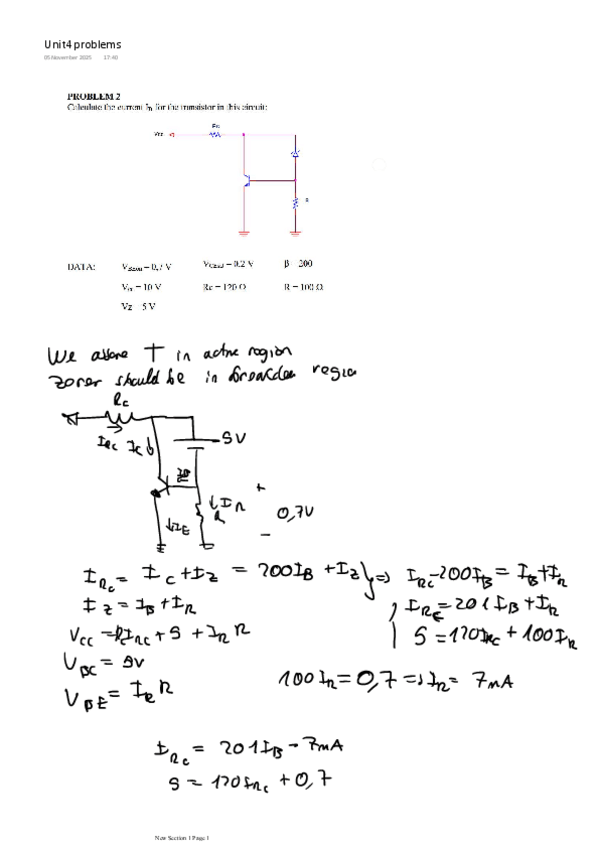 Unit4 problems
05 November 2025 17:40
PROBLEM 2
Calculate the current I_B for the transistor in this circuit:
Vcc
Rc
R
DATA: V_BEon = 0,7 V V_CEsat = 0.2 V β = 200
Vcc = 10 V Rc = 120 Ω R = 100 Ω
Vz = 5 V
We assome T in active region
zener should be in breakden regio
Rc
I_RC I_C 5V
I_B
I_R
R
+
0,7V
-
I_E
I_Rc = I_C + I_Z = 200I_B + I_Z } => I_Rc - 200I_B = I_B + I_R
I_Z = I_B + I_R , I_Rc = 201I_B + I_R
V_CC = RI_RC + 5 + I_R R 5 = 120I_Rc + 100I_R
V_BC = 5V
V_BE = I_R R 100I_R = 0,7 => I_R = 7mA
I_Rc = 201I_B - 7mA
5 = 120I_Rc + 0,7
New Section 1 Page 1